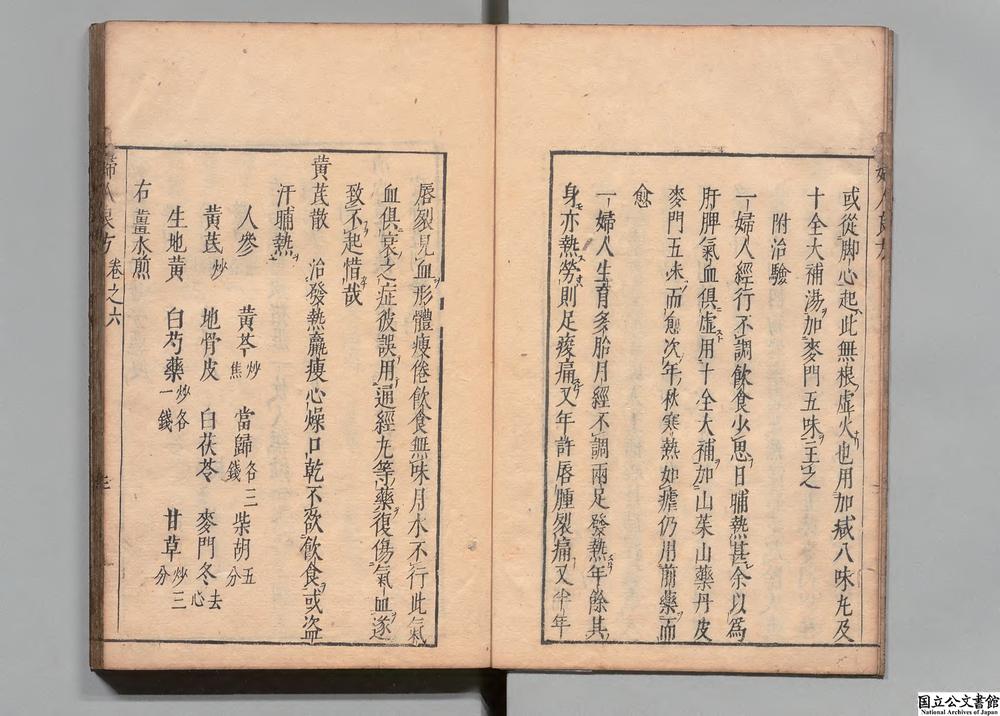 或從脚心起此無根虛火也用加減八味丸及
十全大補湯加麥門五味主之
附治驗
一婦人經行不調飲食少思日晡熱甚余以爲
肝脾氣血俱虛用十全大補加山茱山藥丹皮
麥門五味而愈次年秋寒熱如瘧仍用前藥而
愈
一婦人生育多胎月經不調兩足發熱年餘其
身亦熱勞則足痠痛又年許唇腫裂痛又半年
唇裂見血形體瘦倦飲食無味月水不行此氣
血俱衰之症彼誤用通經丸等藥復傷氣血遂
致不起惜哉
黃芪散 治發熱羸瘦心燥口乾不欲飲食或盜
汗晡熱
人參 黃芩炒焦 當歸各三錢 柴胡五分
黃芪炒 地骨皮 白茯苓 麥門冬去心
生地黃 白芍藥炒各一錢 甘草炒三分
右薑水煎
婦人良方 卷之六
国立公文書館
National Archives of Japan